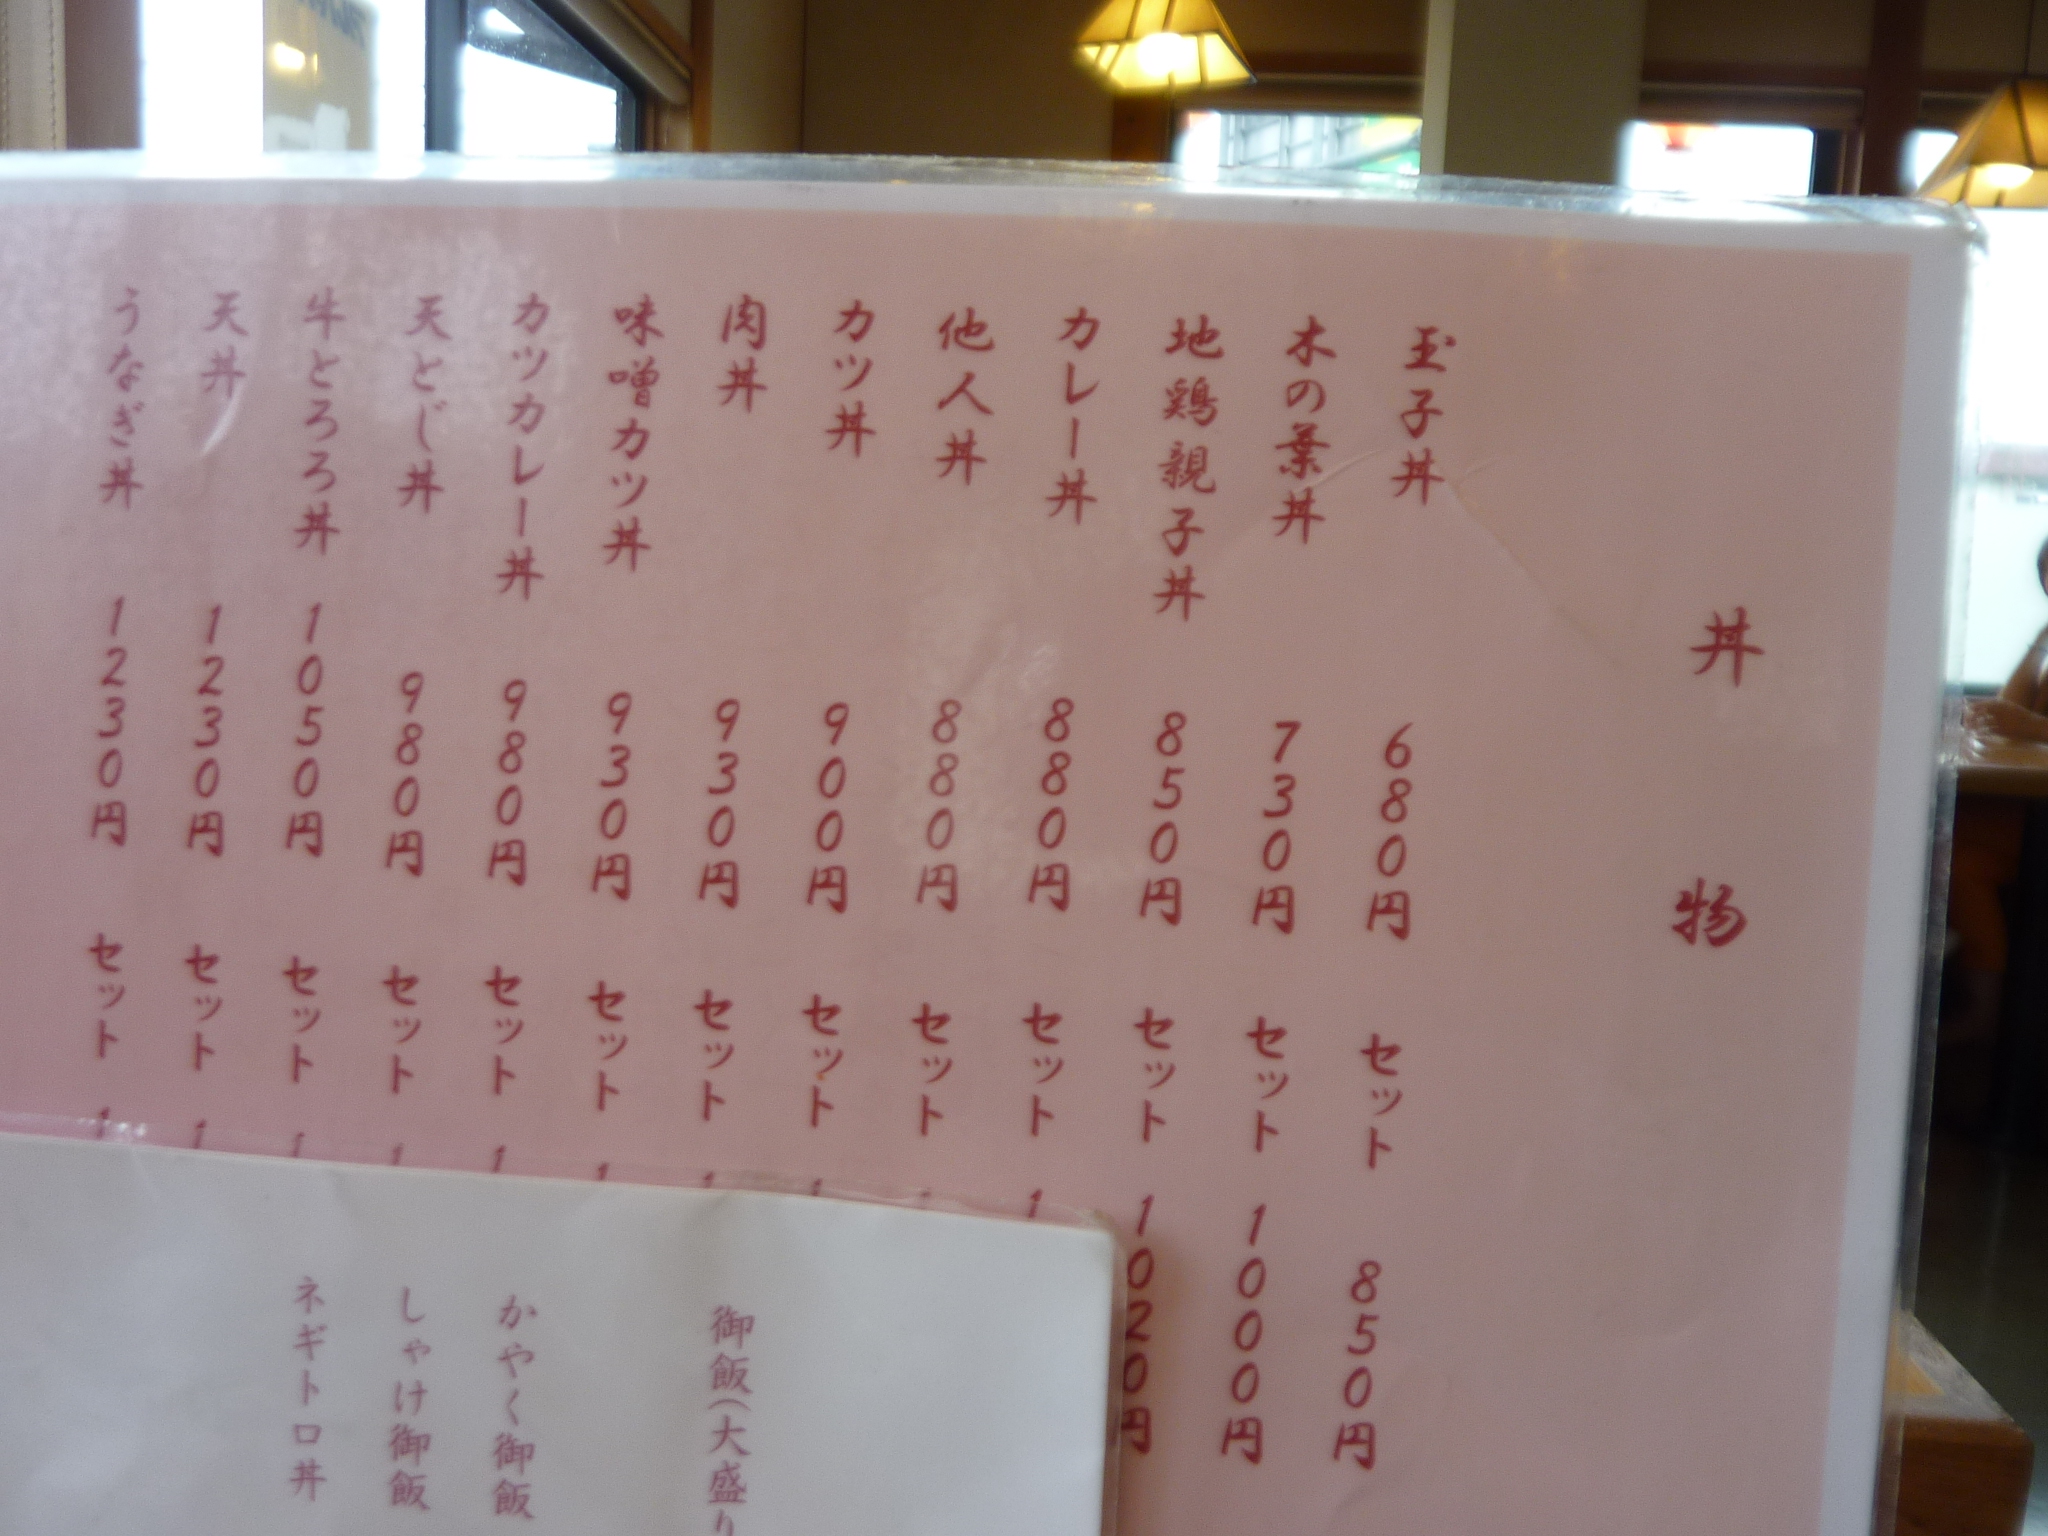 丼物
玉子丼 680円 セット 850円
木の葉丼 730円 セット 1000円
地鶏親子丼 850円 セット 1020円
カレー丼 880円 セット 1
他人丼 880円 セット 1
カツ丼 900円 セット 1
肉丼 930円 セット 1
味噌カツ丼 930円 セット 1
カツカレー丼 980円 セット 1
天とじ丼 980円 セット 1
牛とろろ丼 1050円 セット 1
天丼 1230円 セット 1
うなぎ丼 1230円 セット 1
御飯(大盛り
かやく御飯
しゃけ御飯
ネギトロ丼